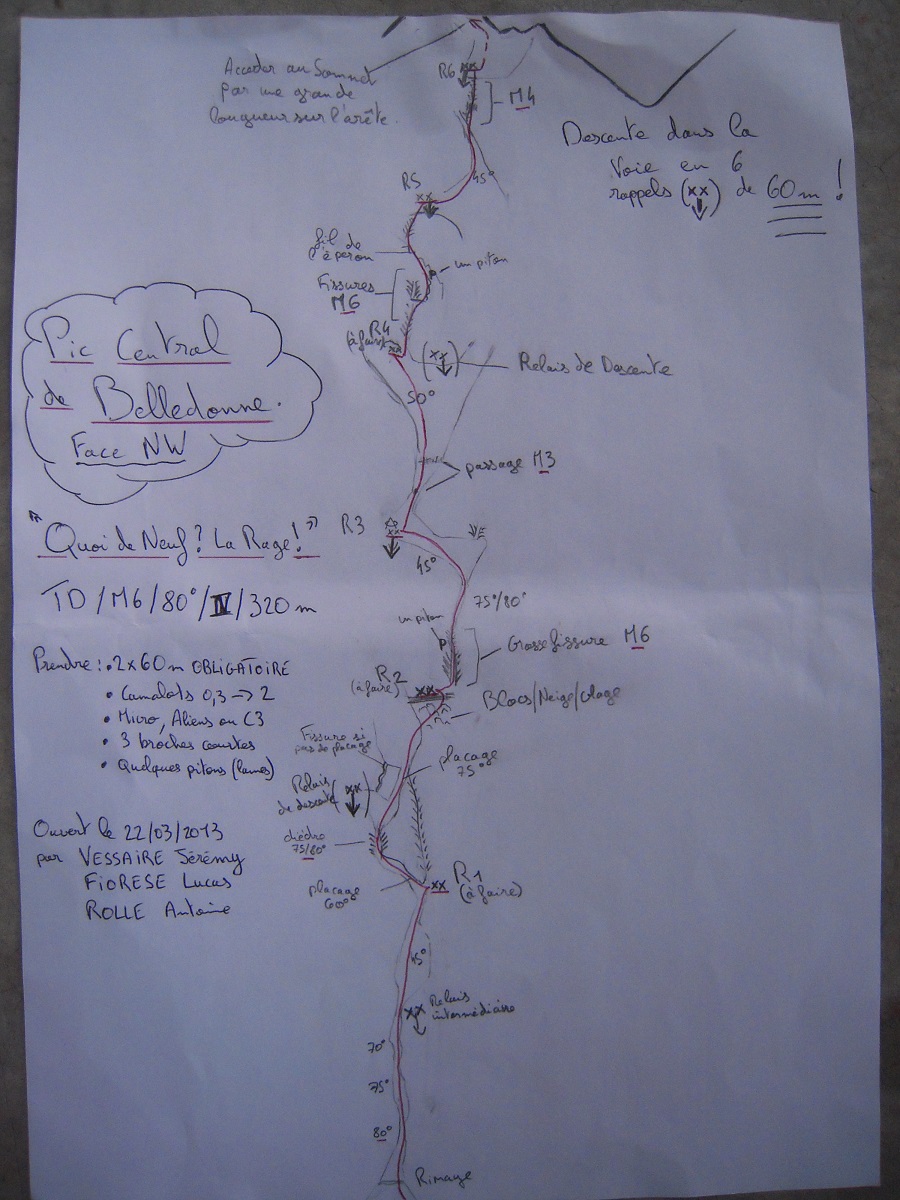 Accéder au Sommet
par une grande
longueur sur l'arête.
R6 xx
M4
Descente dans la
Voie en 6
rappels (xx) de 60m !
45°
R5
xx
fil de
l'éperon
un piton
Fissures
M6
R4
(à faire)
xx
(xx)
Relais de Descente
50°
Pic Central
de Belledonne.
Face NW
passage M3
"Quoi de Neuf? La Rage!"
R3
xx
45°
TD/M6/80°/IV/320m
75°/80°
un piton
Grosse fissure M6
Prendre: • 2x60m OBLIGATOIRE
• Camalots 0,3 → 2
• Micro, Aliens ou C3
• 3 broches courtes
• Quelques pitons (lames)
R2
(à faire)
xx
Blocs/Neige/Glace
Fissure si
pas de placage
placage
75°
Relais
de descente
(xx)
dièdre
75/80°
Ouvert le 22/03/2013
par VESSAIRE Jérémy
FIORESE Lucas
ROLLE Antoine
placage
60°
xx R1
(à faire)
45°
xx Relais
intermédiaire
70°
75°
80°
Rimaye